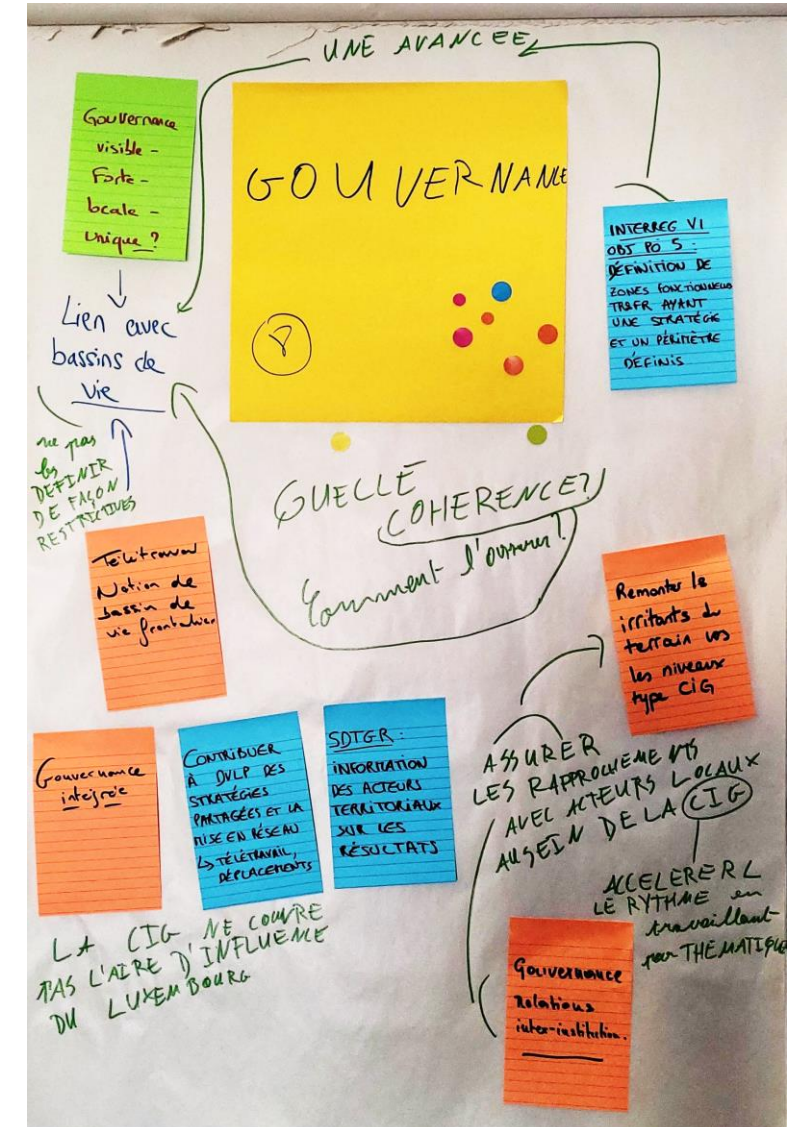 UNE AVANCEE
Gouvernance
visible -
Forte -
locale -
unique ?
GOUVERNANCE
INTERREG VI
OBJ PO 5 :
DÉFINITION DE
ZONES FONCTIONNELLES
TRSFR AYANT
UNE STRATÉGIE
ET UN PÉRIMÈTRE
DÉFINIS
Lien avec
bassins de
vie
ne pas
les
DEFINIR
DE FAÇON
RESTRICTIVES
QUELLE
COHERENCE ?
Comment l'assurer ?
Télétravail
Notion de
bassin de
vie frontalier
Remonter le
irritants du
terrain vrs
les niveaux
type CIG
Gouvernance
intégrée
CONTRIBUER
À DVLP DES
STRATÉGIES
PARTAGÉES ET LA
MISE EN RÉSEAU
↳ TÉLÉTRAVAIL,
DÉPLACEMENTS
SDTGR :
INFORMATION
DES ACTEURS
TERRITORIAUX
SUR LES
RÉSULTATS
ASSURER
LES RAPPROCHEMENTS
AVEC ACTEURS LOCAUX
AU SEIN DE LA CIG
ACCELERER
LE RYTHME en
travaillant
par THEMATIQUE
LA CIG NE COUVRE
PAS L'AIRE D'INFLUENCE
DU LUXEMBOURG
Gouvernance
Relations
inter-institution.